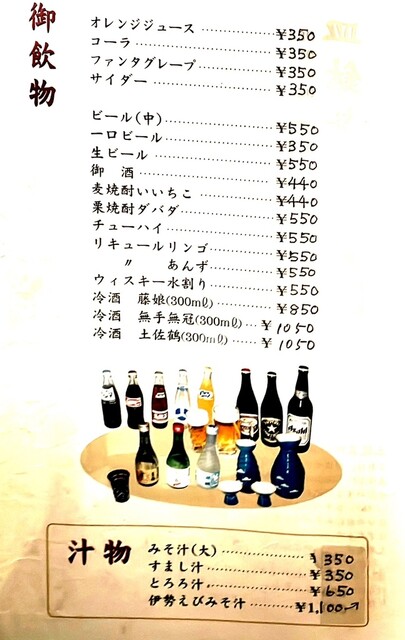 御飲物
オレンジジュース ¥350
コーラ ¥350
ファンタグレープ ¥350
サイダー ¥350
ビール(中) ¥550
一口ビール ¥350
生ビール ¥550
御 酒 ¥440
麦焼酎いいちこ ¥440
栗焼酎ダバダ ¥550
チューハイ ¥550
リキュールリンゴ ¥550
〃 あんず ¥550
ウィスキー水割り ¥550
冷酒 藤娘(300mℓ) ¥850
冷酒 無手無冠(300mℓ) ¥1050
冷酒 土佐鶴(300mℓ) ¥1050
Asahi
汁物
みそ汁(大) ¥350
すまし汁 ¥350
とろろ汁 ¥650
伊勢えびみそ汁 ¥1,100